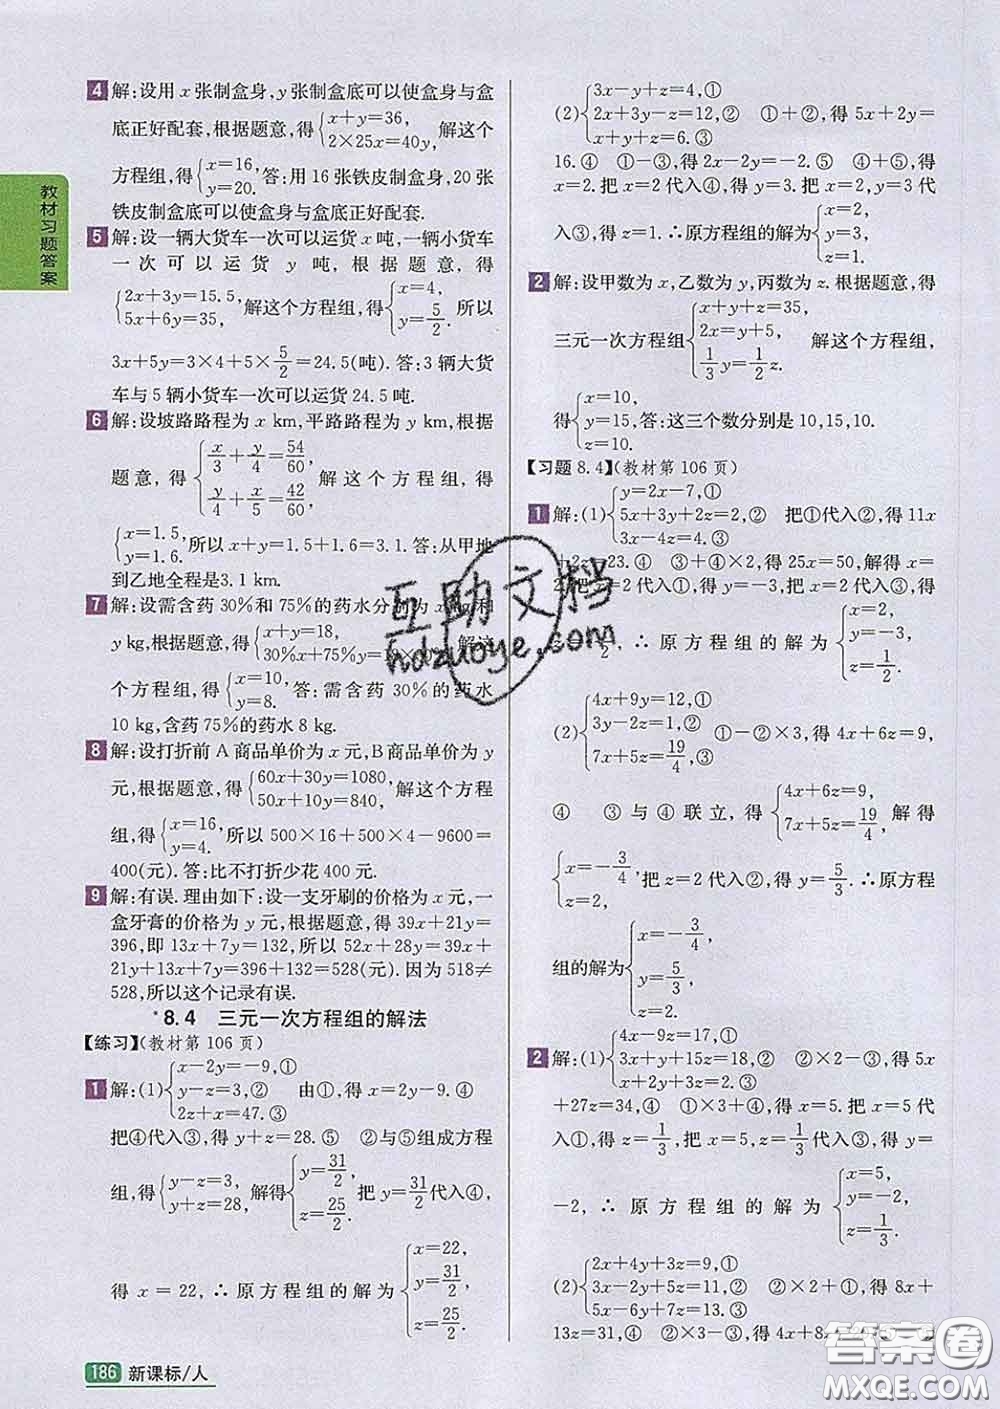 教材习题答案
4 解:设用 x 张制盒身,y 张制盒底可以使盒身与盒
底正好配套,根据题意,得{x+y=36, 2×25x=40y, 解这个
方程组,得{x=16, y=20. 答:用 16 张铁皮制盒身,20 张
铁皮制盒底可以使盒身与盒底正好配套.
5 解:设一辆大货车一次可以运货 x 吨,一辆小货车
一次可以运货 y 吨,根据题意,得
{2x+3y=15.5, 5x+6y=35, 解这个方程组,得{x=4, y=5/2. 所以
3x+5y=3×4+5×5/2=24.5(吨). 答:3 辆大货
车与 5 辆小货车一次可以运货 24.5 吨.
6 解:设坡路路程为 x km,平路路程为 y km,根据
题意,得{x/3+y/4=54/60, y/4+x/5=42/60, 解这个方程组,得
{x=1.5, y=1.6, 所以 x+y=1.5+1.6=3.1. 答:从甲地
到乙地全程是3.1 km.
7 解:设需含药 30%和 75%的药水分别为 x kg 和
y kg,根据题意,得{x+y=18, 30%x+75%y= 解这
个方程组,得{x=10, y=8. 答:需含药 30%的药水
10 kg,含药 75%的药水 8 kg.
8 解:设打折前 A 商品单价为 x 元,B 商品单价为 y
元,根据题意,得{60x+30y=1080, 50x+10y=840, 解这个方程
组,得{x=16, y=4. 所以 500×16+500×4-9600=
400(元). 答:比不打折少花 400 元.
9 解:有误. 理由如下:设一支牙刷的价格为 x 元,一
盒牙膏的价格为 y 元,根据题意,得 39x+21y=
396,即 13x+7y=132,所以 52x+28y=39x+
21y+13x+7y=396+132=528(元). 因为 518≠
528,所以这个记录有误.
*8.4 三元一次方程组的解法
【练习】(教材第 106 页)
1 解:(1){x-2y=-9,① y-z=3,② 2z+x=47.③ 由①,得 x=2y-9.④
把④代入③,得 y+z=28.⑤ ②与⑤组成方程
组,得{y-z=3, y+z=28. 解得{y=31/2, z=25/2. 把 y=31/2代入④,
得 x=22,∴原方程组的解为{x=22, y=31/2, z=25/2.
186 新课标/人
(2){3x-y+z=4,① 2x+3y-z=12,② x+y+z=6.③ ①+②,得 5x+2y=
16.④ ①-③,得 2x-2y=-2.⑤ ④+⑤,得
x=2. 把 x=2 代入④,得 y=3. 把 x=2,y=3 代
入③,得 z=1. ∴原方程组的解为{x=2, y=3, z=1.
2 解:设甲数为 x,乙数为 y,丙数为 z. 根据题意,得
三元一次方程组{x+y+z=35, 2x=y+5, 1/3y=1/2z. 解这个方程组,
得{x=10, y=15, z=10. 答:这三个数分别是 10,15,10.
【习题 8.4】(教材第 106 页)
1 解:(1){y=2x-7,① 5x+3y+2z=2,② 3x-4z=4.③ 把①代入②,得 11x
+2z=23.④ ③+④×2,得 25x=50,解得 x=
2. 把 x=2 代入①,得 y=-3. 把 x=2 代入③,得
1/2, ∴原方程组的解为{x=2, y=-3, z=1/2.
(2){4x+9y=12,① 3y-2z=1,② 7x+5z=19/4,③ ①-②×3,得 4x+6z=9,
④ ③与④联立,得{4x+6z=9, 7x+5z=19/4, 解得
{x=-3/4, z=2, 把 z=2 代入②,得 y=5/3. ∴原方程
组的解为{x=-3/4, y=5/3, z=2.
2 解:(1){4x-9z=17,① 3x+y+15z=18,② x+2y+3z=2.③ ②×2-③,得 5x
+27z=34,④ ①×3+④,得 x=5. 把 x=5 代
入①,得 z=1/3,把 x=5,z=1/3代入③,得 y=
-2,∴原方程组的解为{x=5, y=-2, z=1/3.
(2){2x+4y+3z=9,① 3x-2y+5z=11,② 5x-6y+7z=13.③ ②×2+①,得 8x+
13z=31,④ ②×3-③,得 4x+8
互助文档
hdzuoye.com
答案圈
MXQE.COM